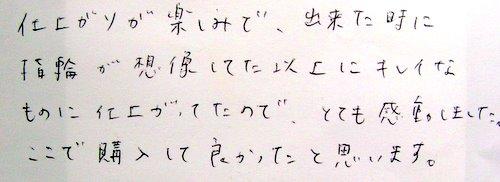 仕上がりが楽しみで、出来た時に
指輪が想像してた以上にキレイな
ものに仕上がってたので、とても感動しました。
ここで購入して良かったと思います。